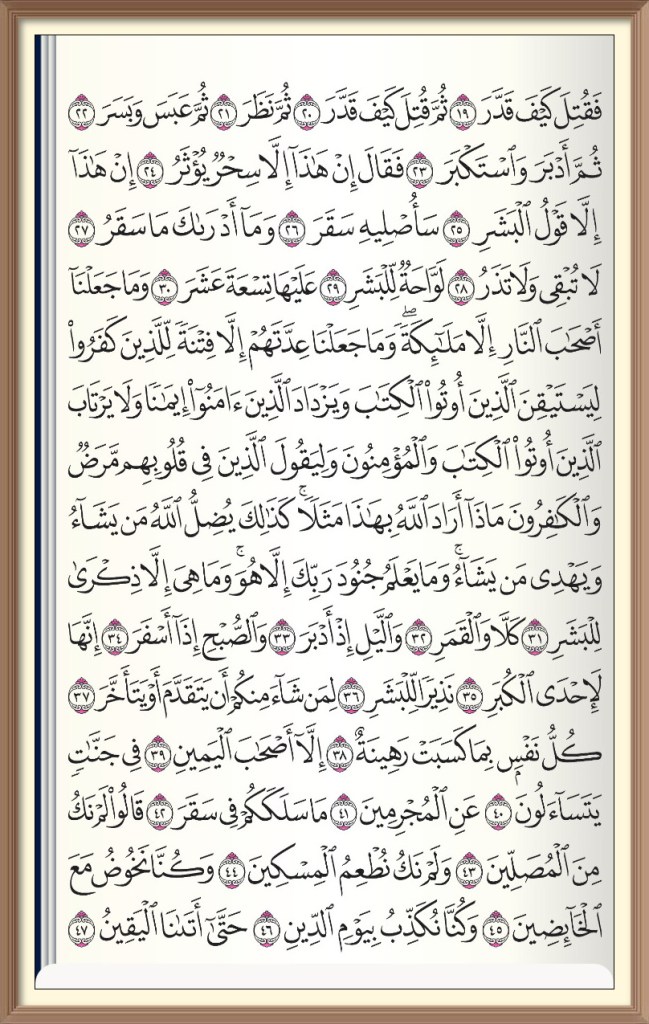 فَقُتِلَ كَيْفَ قَدَّرَ ١٩ ثُمَّ قُتِلَ كَيْفَ قَدَّرَ ٢٠ ثُمَّ نَظَرَ ٢١ ثُمَّ عَبَسَ وَبَسَرَ ٢٢
ثُمَّ أَدْبَرَ وَٱسْتَكْبَرَ ٢٣ فَقَالَ إِنْ هَٰذَآ إِلَّا سِحْرٌ يُؤْثَرُ ٢٤ إِنْ هَٰذَآ
إِلَّا قَوْلُ ٱلْبَشَرِ ٢٥ سَأُصْلِيهِ سَقَرَ ٢٦ وَمَآ أَدْرَىٰكَ مَا سَقَرُ ٢٧
لَا تُبْقِى وَلَا تَذَرُ ٢٨ لَوَّاحَةٌ لِّلْبَشَرِ ٢٩ عَلَيْهَا تِسْعَةَ عَشَرَ ٣٠ وَمَا جَعَلْنَآ
أَصْحَٰبَ ٱلنَّارِ إِلَّا مَلَٰٓئِكَةً ۙ وَمَا جَعَلْنَا عِدَّتَهُمْ إِلَّا فِتْنَةً لِّلَّذِينَ كَفَرُوا۟
لِيَسْتَيْقِنَ ٱلَّذِينَ أُوتُوا۟ ٱلْكِتَٰبَ وَيَزْدَادَ ٱلَّذِينَ ءَامَنُوٓا۟ إِيمَٰنًا وَلَا يَرْتَابَ
ٱلَّذِينَ أُوتُوا۟ ٱلْكِتَٰبَ وَٱلْمُؤْمِنُونَ وَلِيَقُولَ ٱلَّذِينَ فِى قُلُوبِهِم مَّرَضٌ
وَٱلْكَٰفِرُونَ مَاذَآ أَرَادَ ٱللَّهُ بِهَٰذَا مَثَلًا ۚ كَذَٰلِكَ يُضِلُّ ٱللَّهُ مَن يَشَآءُ
وَيَهْدِى مَن يَشَآءُ ۚ وَمَا يَعْلَمُ جُنُودَ رَبِّكَ إِلَّا هُوَ ۚ وَمَا هِىَ إِلَّا ذِكْرَىٰ
لِلْبَشَرِ ٣١ كَلَّا وَٱلْقَمَرِ ٣٢ وَٱلَّيْلِ إِذْ أَدْبَرَ ٣٣ وَٱلصُّبْحِ إِذَآ أَسْفَرَ ٣٤ إِنَّهَا
لَإِحْدَى ٱلْكُبَرِ ٣٥ نَذِيرًا لِّلْبَشَرِ ٣٦ لِمَن شَآءَ مِنكُمْ أَن يَتَقَدَّمَ أَوْ يَتَأَخَّرَ ٣٧
كُلُّ نَفْسٍۭ بِمَا كَسَبَتْ رَهِينَةٌ ٣٨ إِلَّآ أَصْحَٰبَ ٱلْيَمِينِ ٣٩ فِى جَنَّٰتٍ
يَتَسَآءَلُونَ ٤٠ عَنِ ٱلْمُجْرِمِينَ ٤١ مَا سَلَكَكُمْ فِى سَقَرَ ٤٢ قَالُوا۟ لَمْ نَكُ
مِنَ ٱلْمُصَلِّينَ ٤٣ وَلَمْ نَكُ نُطْعِمُ ٱلْمِسْكِينَ ٤٤ وَكُنَّا نَخُوضُ مَعَ
ٱلْخَآئِضِينَ ٤٥ وَكُنَّا نُكَذِّبُ بِيَوْمِ ٱلدِّينِ ٤٦ حَتَّىٰٓ أَتَىٰنَا ٱلْيَقِينُ ٤٧